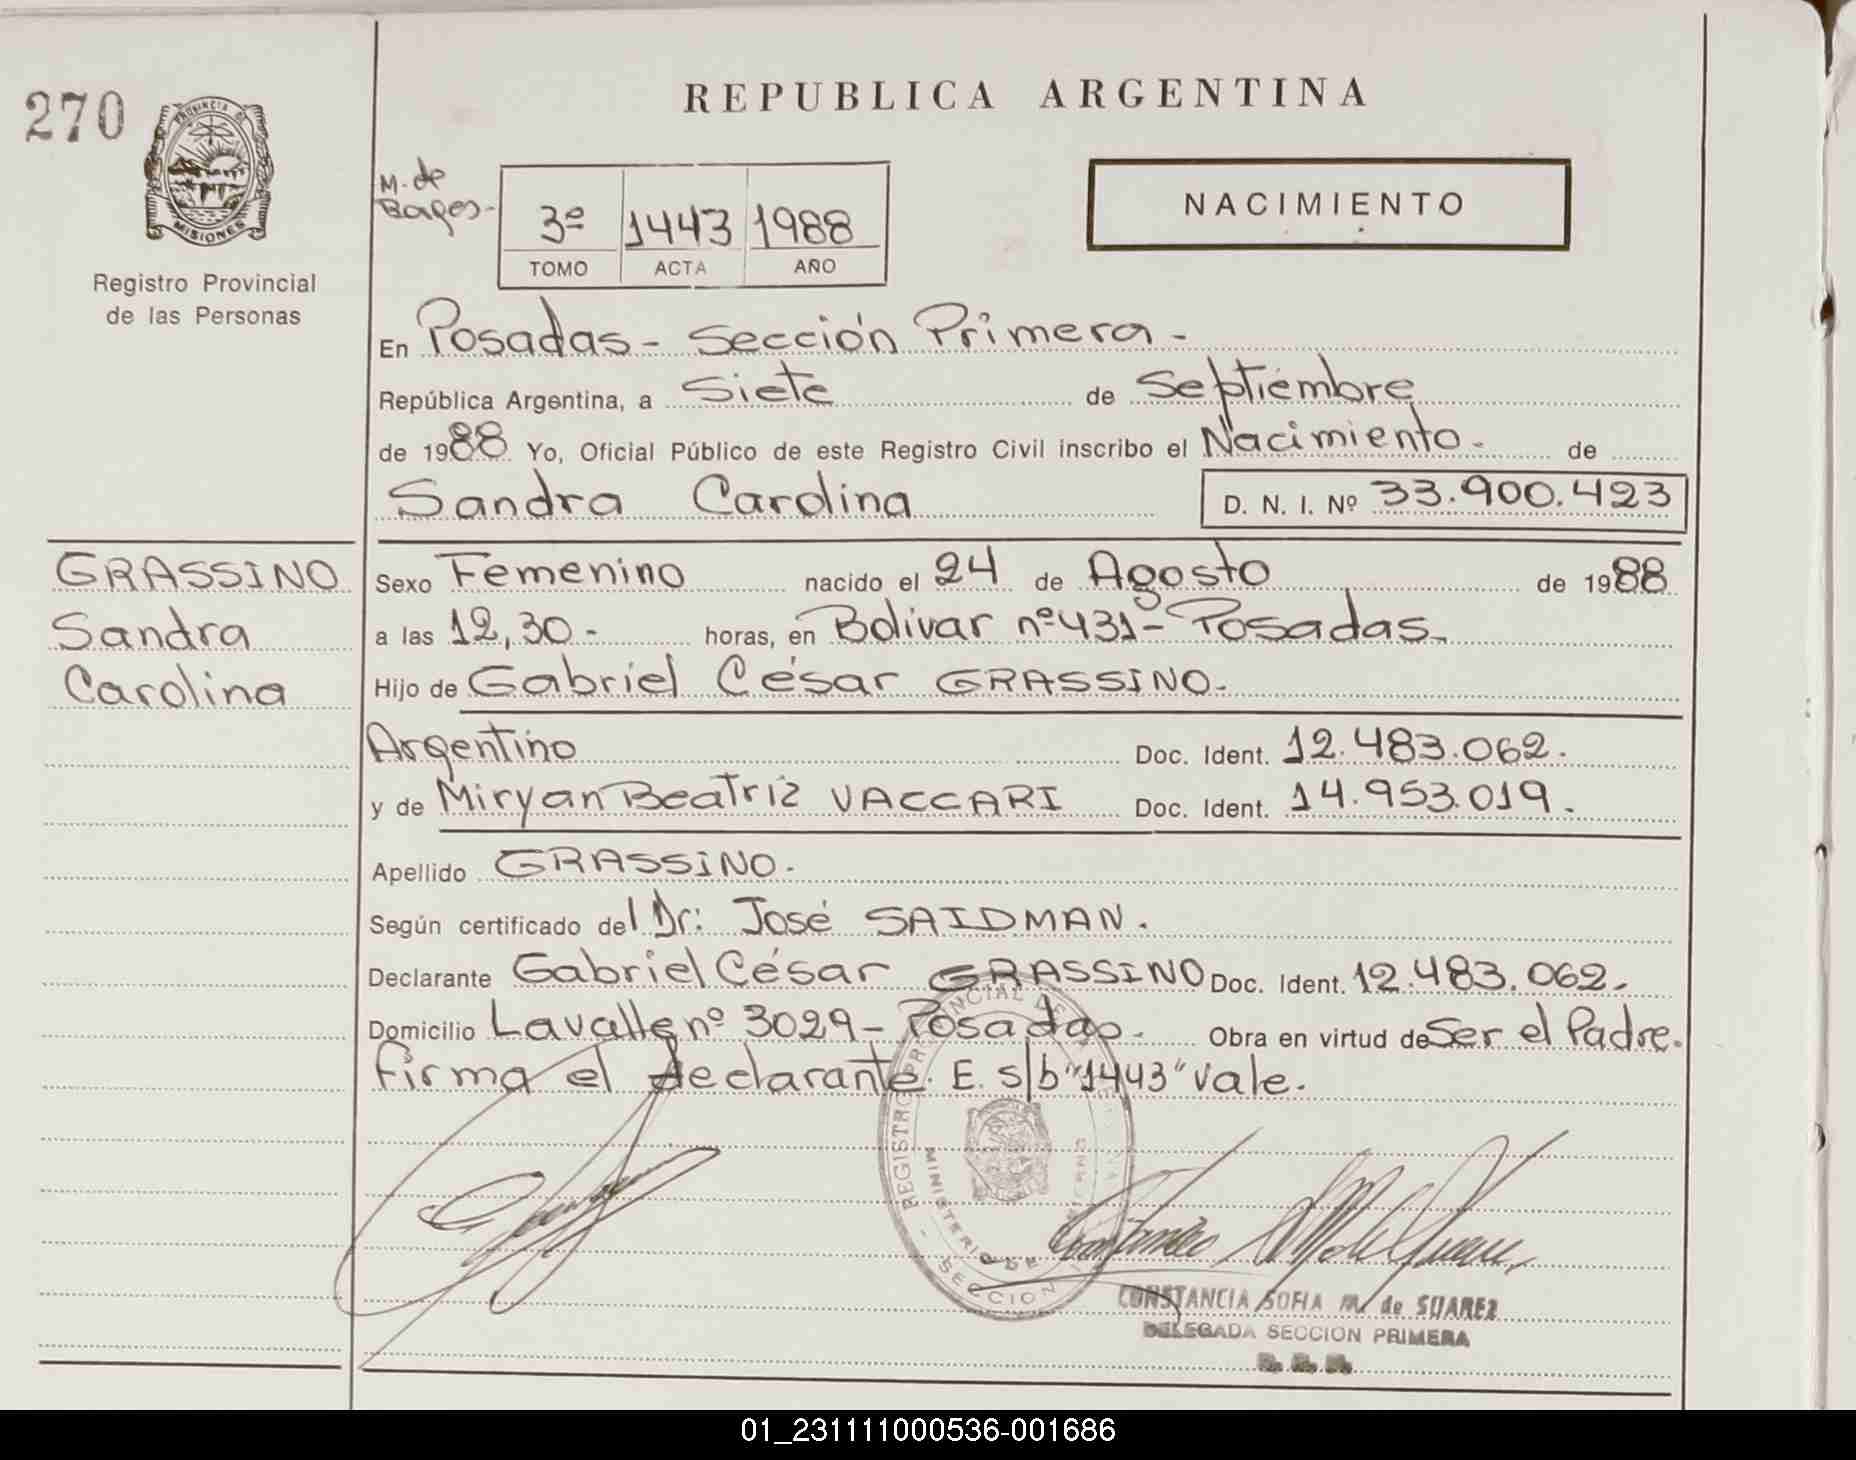 270
PROVINCIA DE
MISIONES
Registro Provincial
de las Personas
REPUBLICA ARGENTINA
M. de
3º 1443 1988
TOMO ACTA AÑO
NACIMIENTO
En Posadas - Sección Primera -
República Argentina, a Siete de Septiembre
de 1988 Yo, Oficial Público de este Registro Civil inscribo el Nacimiento. de
Sandra Carolina D. N. I. Nº 33.900.423
GRASSINO
Sandra
Carolina
Sexo Femenino nacido el 24 de Agosto de 1988
a las 12,30 - horas, en Bolivar nº 431 - Posadas.
Hijo de Gabriel César GRASSINO.
Argentino Doc. Ident. 12.483.062.
y de Miryan Beatriz VACCARI Doc. Ident. 14.953.019.
Apellido GRASSINO.
Según certificado del Dr: José SAIDMAN.
Declarante Gabriel César GRASSINO Doc. Ident. 12.483.062.
Domicilio Lavalle nº 3029 - Posadas. Obra en virtud de Ser el Padre.
Firma el declarante. E. s/b "1443" vale.
REGISTRO PROVINCIAL DE
MINISTERIO DE
SECCION
CONSTANCIA SOFIA M. de SUAREZ
DELEGADA SECCION PRIMERA
01_231111000536-001686